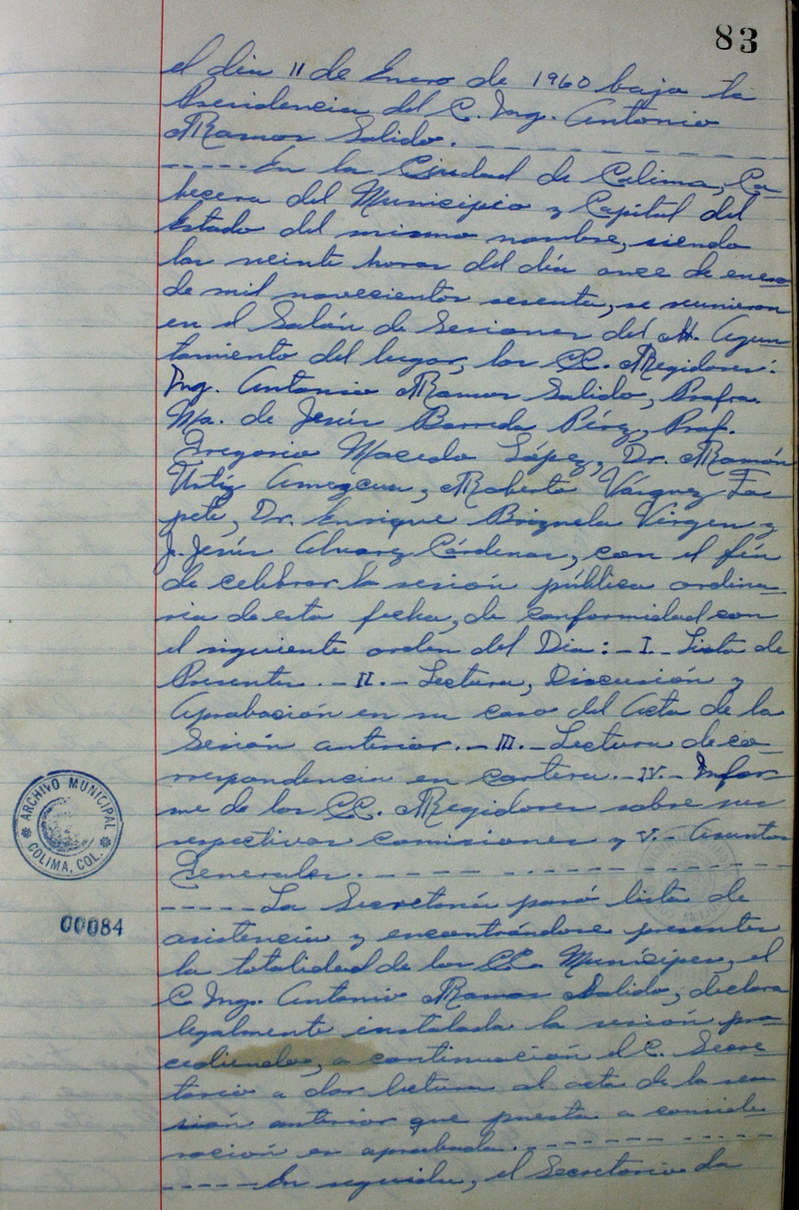 83
el día 11 de Enero de 1960 bajo la
Presidencia del C. Ing. Antonio
Ramos Salido. - - - - - - - - - -
- - - - - En la Ciudad de Colima, Ca-
becera del Municipio y Capital del
Estado del mismo nombre, siendo
las veinte horas del día once de enero
de mil novecientos sesenta, se reunieron
en el Salón de Sesiones del H. Ayun-
tamiento del lugar, los CC. Regidores:
Ing. Antonio Ramos Salido, Profra.
Ma. de Jesús Barreda Pérez, Prof.
Gregorio Macedo López, Dr. Ramón
Ortiz Amezcua, Roberto Vázquez Ta-
pete, Dr. Enrique Brizuela Virgen y
J. Jesús Alvarez Cárdenas, con el fin
de celebrar la sesión pública ordina-
ria de esta fecha, de conformidad con
el siguiente orden del Día: - I. - Lista de
Presentes. - II. - Lectura, Discusión y
Aprobación en su caso del Acta de la
Sesión anterior. - III. - Lectura de co-
rrespondencia en cartera. - IV. - Infor-
me de los CC. Regidores sobre sus
respectivas comisiones y V. - Asuntos
Generales. - - - - - - - - - -
- - - - - La Secretaría pasó lista de
asistencia y encontrándose presentes
la totalidad de los CC. Munícipes, el
C. Ing. Antonio Ramos Salido, declara
legalmente instalada la sesión pro-
cediendo, a continuación el C. Secre-
tario a dar lectura al acta de la se-
sión anterior que puesta a conside-
ración es aprobada. - - - - - - - - - -
- - - - - En seguida, el Secretario da
ARCHIVO MUNICIPAL
COLIMA, COL.
00084